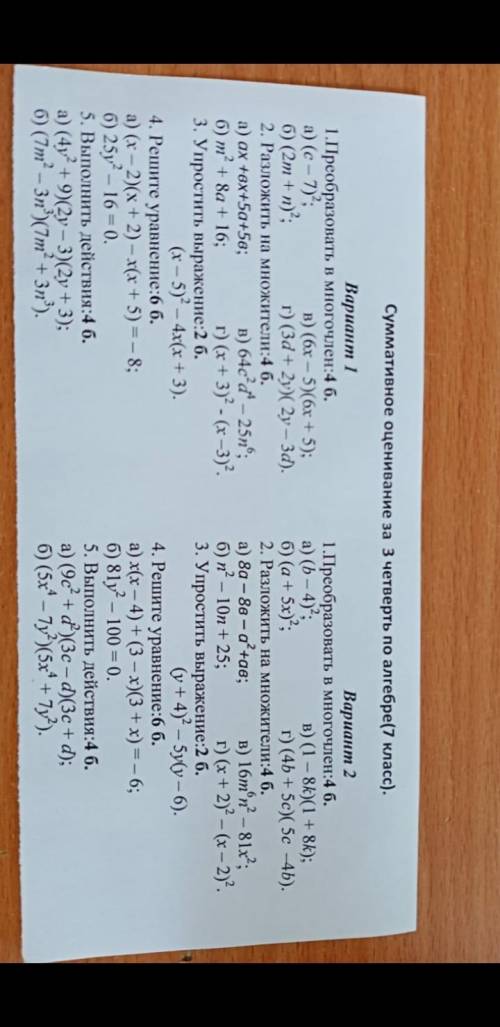 Суммативное оценивание за 3 четверть по алгебре(7 класс).
Вариант 1
1.Преобразовать в многочлен:4 б.
а) (c – 7)²; в) (6x – 5)(6x + 5);
б) (2m + n)²; г) (3d + 2y)( 2y – 3d).
2. Разложить на множители:4 б.
а) ax +вx+5a+5в; в) 64c²d⁴ – 25n⁶;
б) m² + 8a + 16; г) (x + 3)² - (x –3)².
3. Упростить выражение:2 б.
(x – 5)² – 4x(x + 3).
4. Решите уравнение:6 б.
а) (x – 2)(x + 2) – x(x + 5) = – 8;
б) 25y² – 16 = 0.
5. Выполнить действия:4 б.
а) (4y² + 9)(2y – 3)(2y + 3);
б) (7m² – 3n³)(7m² + 3n³).
Вариант 2
1.Преобразовать в многочлен:4 б.
а) (b – 4)²; в) (1 – 8k)(1 + 8k);
б) (a + 5x)²; г) (4b + 5c)( 5c –4b).
2. Разложить на множители:4 б.
а) 8a – 8в – a²+aв; в) 16m⁶n² – 81x²;
б) n² – 10n + 25; г) (x + 2)² – (x – 2)².
3. Упростить выражение:2 б.
(y + 4)² – 5y(y – 6).
4. Решите уравнение:6 б.
а) x(x – 4) + (3 – x)(3 + x) = – 6;
б) 81y² – 100 = 0.
5. Выполнить действия:4 б.
а) (9c² + d²)(3c – d)(3c + d);
б) (5x⁴ – 7y²)(5x⁴ + 7y²).